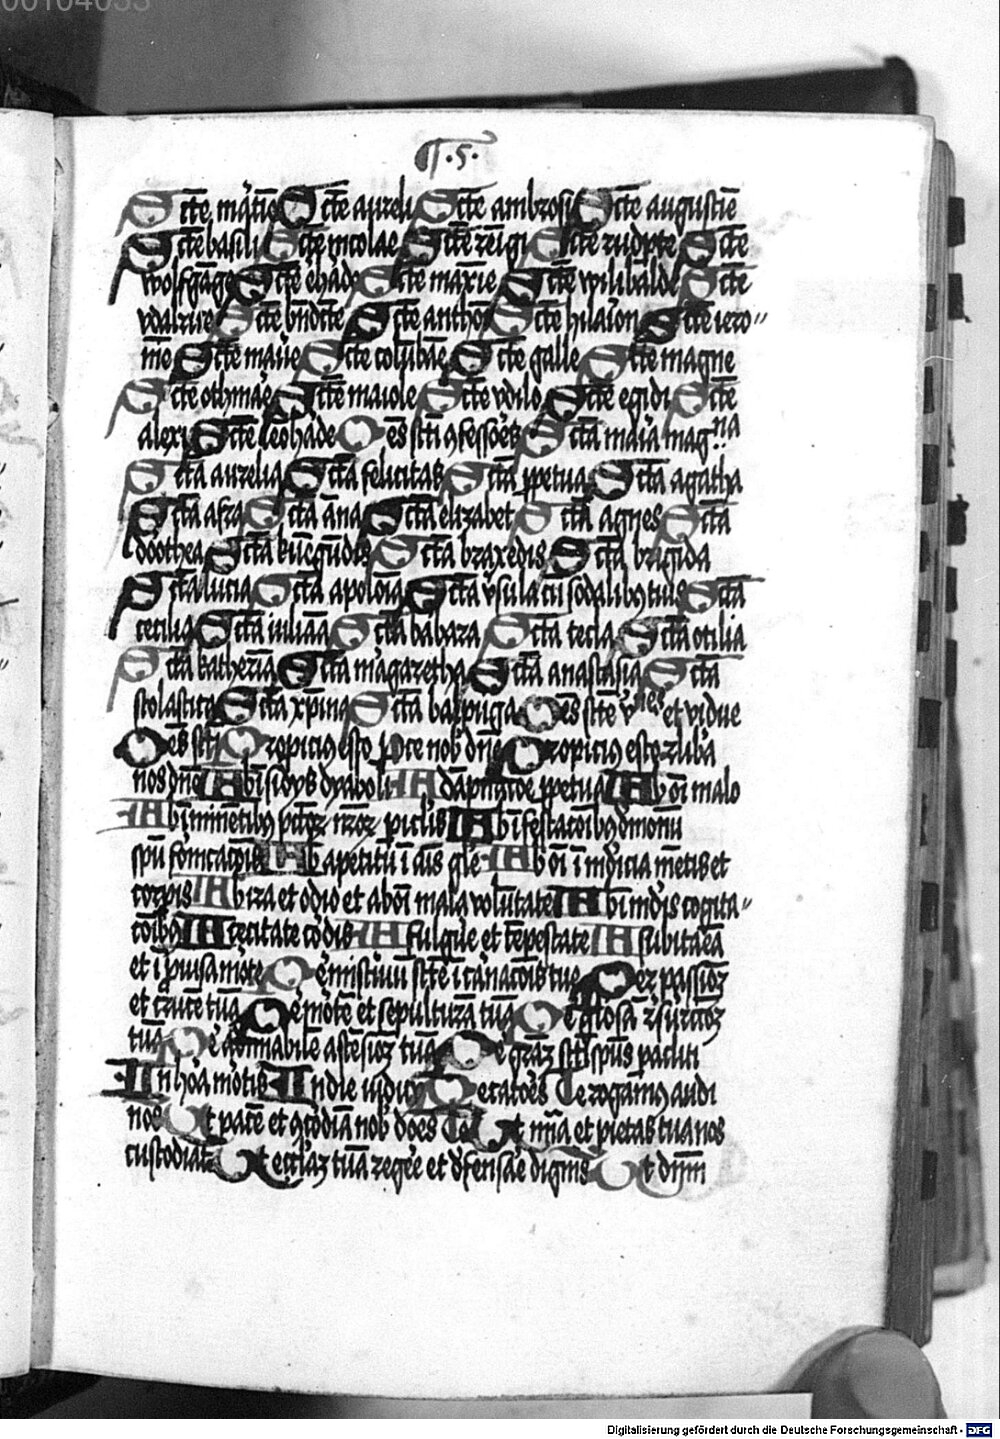 00104035
¶ ·5·
Scte mātīe Scte aureli Scte ambrosi Scte augustīe
Scte basili Scte nicolae Scte remigi Scte rudpte Scte
wolfgāge Scte ehade Scte maxīe Scte wilibalde Scte
vdalrice Scte bndcte Scte anthoi Scte hilarion Scte iero〃
īme Scte maure Scte colubāe Scte galle Scte magne
Scte othmāe Scte maiole Scte vdilo Scte egidi Scte
alexi Scte leohade Oēs scti ꝯfessoēs Scta maria mag.na
Scta aurelia Scta felicitas Scta ppetua Scta agatha
Scta afra Scta āna Scta elizabet Scta agnes Scta
dorothea Scta kunegudis Scta braxedis Scta brigida
Scta lucia Scta apoloia Scta vrsula cū sodalibus tuis Scta
cecilia Scta iuliāa Scta babara Scta tecla Scta otilia
Scta katherīa Scta magaretha Scta anastasia Scta
scolastica Scta xpina Scta balpuga Oēs scte v.les et vidue
Oēs scti Propicius esto pce nob dne Propicius esto liba
nos dne Ab isidys dyaboli A dapnatoe ppetua Ab oi malo
Ab iminetibus pctoꝝ nroꝝ piclis Ab ifestatoibus demonū
spū fornicatois Ab apetitu īais gle Ab oi imūdicia metis et
corpis Ab ira et odio et ab oi mala volūtate Ab imūdis cogita〃
toibus A cecitate codis A fulgue et tēpestate A subitaēa
et ipuisa mote Per misteriū scte icanatois tue Per passioꝫ
et cruce tuā Per mote et sepulturā tuā Per gliosā resurectoꝫ
tuā Per admiabile ascesioꝫ tuā Per graꝫ scti spūs pacliti
In hoa motis In die iudicij Peccatoēs Te rogamus audi
nos Ut pace et ꝯcodiā nob does Te Ut mia et pietas tua nos
custodiat Ut eccliaꝫ tuā regēe et defensāe digneis Ut dnm
Digitalisierung gefördert durch die Deutsche Forschungsgemeinschaft - DFG